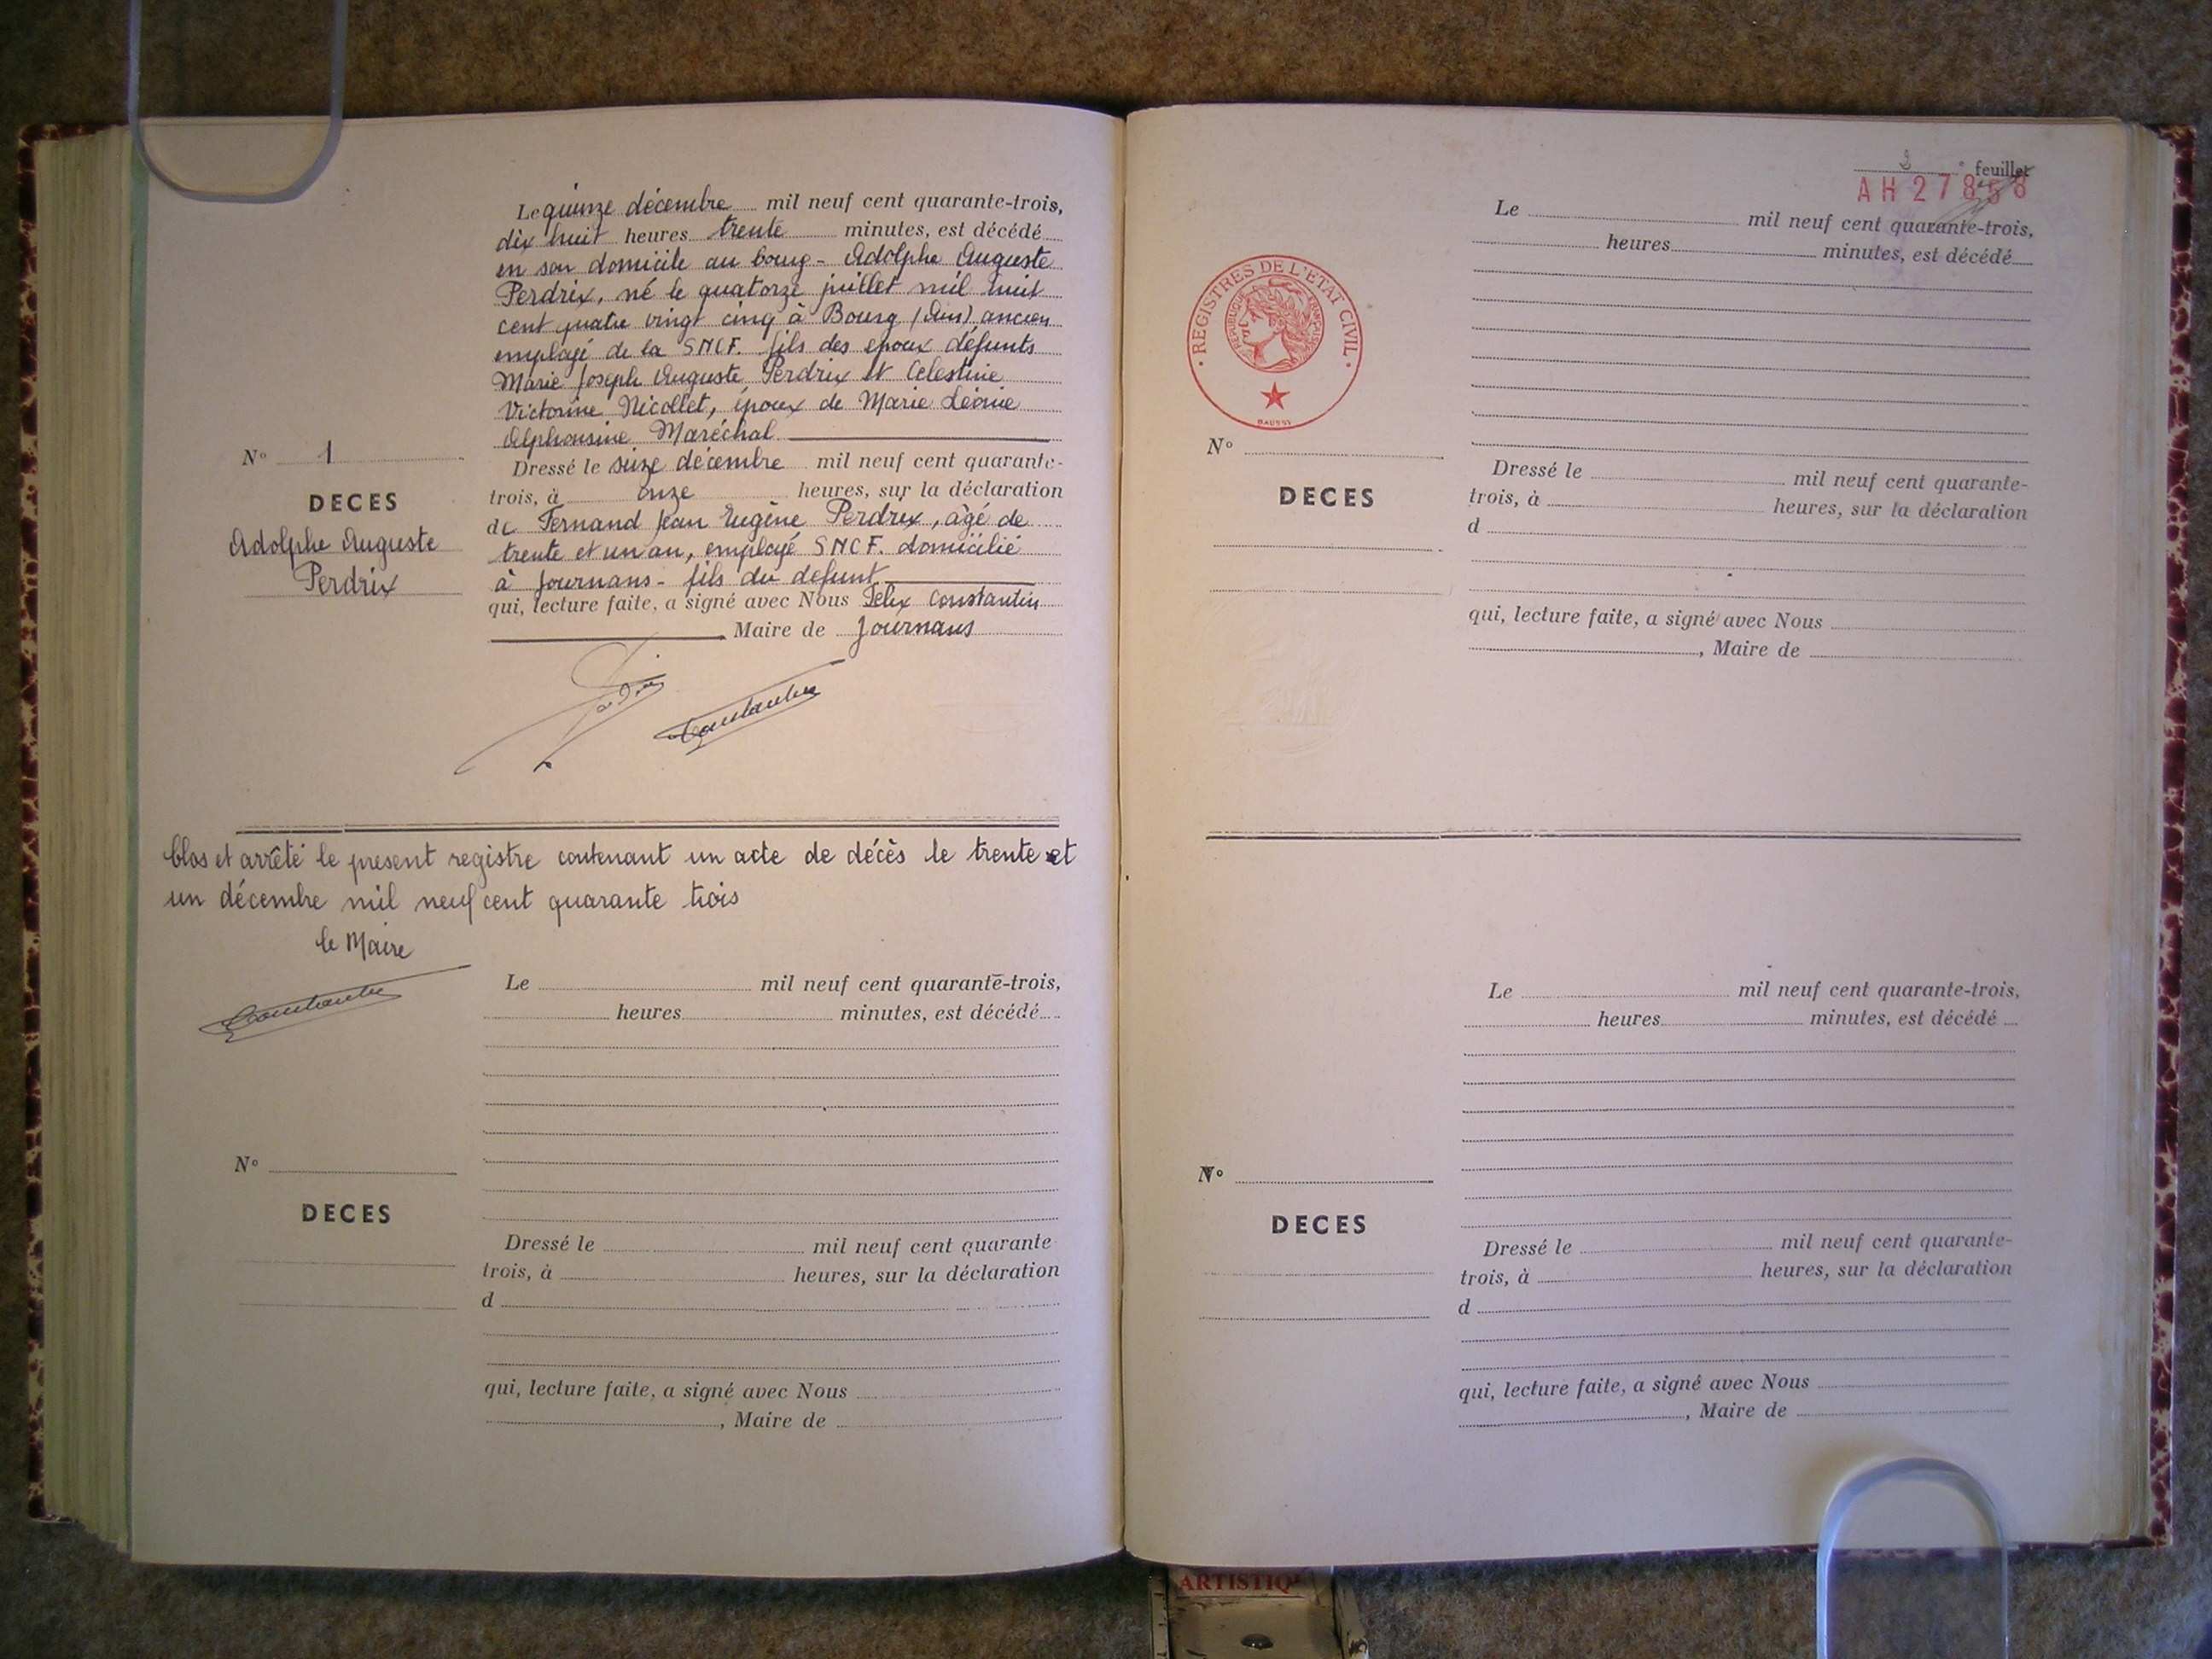 Le quinze décembre mil neuf cent quarante-trois,
dix huit heures trente minutes, est décédé
en son domicile au bourg - Adolphe Auguste
Perdrix, né le quatorze juillet mil huit
cent quatre vingt cinq à Bourg (Ain) ancien
employé de la SNCF. fils des epoux défunts
Marie Joseph Auguste Perdrix et Célestine
Victorine Nicollet, époux de Marie Léonie
Alphonsine Maréchal
N° 1
DECES
Adolphe Auguste
Perdrix
Dressé le seize décembre mil neuf cent quarante-
trois, à onze heures, sur la déclaration
de Fernand Jean Eugène Perdrix, âgé de
trente et un an, employé SNCF. domicilié
à Journans - fils du defunt
qui, lecture faite, a signé avec Nous Félix Constantin
Maire de Journans
Constantin
Clos et arrêté le present registre contenant un acte de décès le trente et
un décembre mil neuf cent quarante trois
le Maire
Constantin
Le mil neuf cent quarante-trois,
heures minutes, est décédé
N°
DECES
Dressé le mil neuf cent quarante
trois, à heures, sur la déclaration
d
qui, lecture faite, a signé avec Nous
, Maire de
° feuillet
AH 27858
Le mil neuf cent quarante-trois,
heures minutes, est décédé
REGISTRES DE L'ETAT CIVIL
REPUBLIQUE FRANÇAISE
N°
DECES
Dressé le mil neuf cent quarante-
trois, à heures, sur la déclaration
d
qui, lecture faite, a signé avec Nous
, Maire de
Le mil neuf cent quarante-trois,
heures minutes, est décédé
N°
DECES
Dressé le mil neuf cent quarante-
trois, à heures, sur la déclaration
d
qui, lecture faite, a signé avec Nous
, Maire de
ARTISTIQ